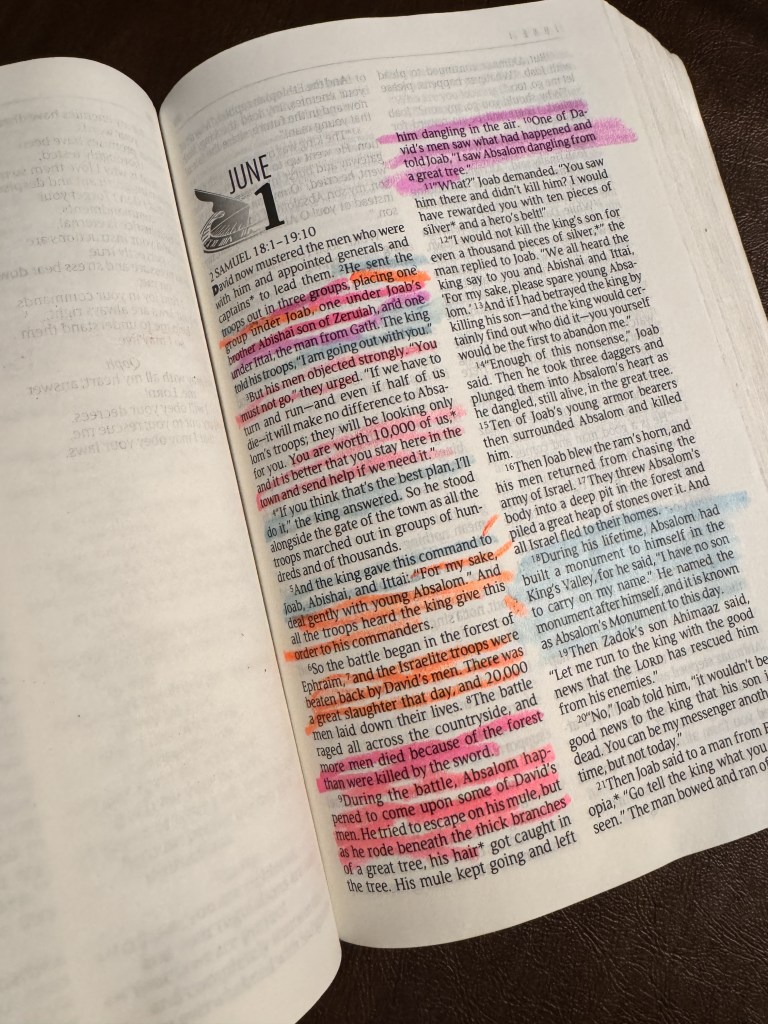 JUNE
1
2 SAMUEL 18:1–19:10
David now mustered the men who were
with him and appointed generals and
captains* to lead them. 2He sent the
troops out in three groups, placing one
group under Joab, one under Joab's
brother Abishai son of Zeruiah, and one
under Ittai, the man from Gath. The king
told his troops, "I am going out with you."
3But his men objected strongly. "You
must not go," they urged. "If we have to
turn and run—and even if half of us
die—it will make no difference to Absa-
lom's troops; they will be looking only
for you. You are worth 10,000 of us,*
and it is better that you stay here in the
town and send help if we need it."
4"If you think that's the best plan, I'll
do it," the king answered. So he stood
alongside the gate of the town as all the
troops marched out in groups of hun-
dreds and of thousands.
5And the king gave this command to
Joab, Abishai, and Ittai: "For my sake,
deal gently with young Absalom." And
all the troops heard the king give this
order to his commanders.
6So the battle began in the forest of
Ephraim, 7and the Israelite troops were
beaten back by David's men. There was
a great slaughter that day, and 20,000
men laid down their lives. 8The battle
raged all across the countryside, and
more men died because of the forest
than were killed by the sword.
9During the battle, Absalom hap-
pened to come upon some of David's
men. He tried to escape on his mule, but
as he rode beneath the thick branches
of a great tree, his hair* got caught in
the tree. His mule kept going and left
him dangling in the air. 10One of Da-
vid's men saw what had happened and
told Joab, "I saw Absalom dangling from
a great tree."
11"What?" Joab demanded. "You saw
him there and didn't kill him? I would
have rewarded you with ten pieces of
silver* and a hero's belt!"
12"I would not kill the king's son for
even a thousand pieces of silver,*" the
man replied to Joab. "We all heard the
king say to you and Abishai and Ittai,
'For my sake, please spare young Absa-
lom.' 13And if I had betrayed the king by
killing his son—and the king would cer-
tainly find out who did it—you yourself
would be the first to abandon me."
14"Enough of this nonsense," Joab
said. Then he took three daggers and
plunged them into Absalom's heart as
he dangled, still alive, in the great tree.
15Ten of Joab's young armor bearers
then surrounded Absalom and killed
him.
16Then Joab blew the ram's horn, and
his men returned from chasing the
army of Israel. 17They threw Absalom's
body into a deep pit in the forest and
piled a great heap of stones over it. And
all Israel fled to their homes.
18During his lifetime, Absalom had
built a monument to himself in the
King's Valley, for he said, "I have no son
to carry on my name." He named the
monument after himself, and it is known
as Absalom's Monument to this day.
19Then Zadok's son Ahimaaz said,
"Let me run to the king with the good
news that the LORD has rescued him
from his enemies."
20"No," Joab told him, "it wouldn't be
good news to the king that his son is
dead. You can be my messenger anoth
time, but not today."
21Then Joab said to a man from
opia,* "Go tell the king what you
seen." The man bowed and ran of